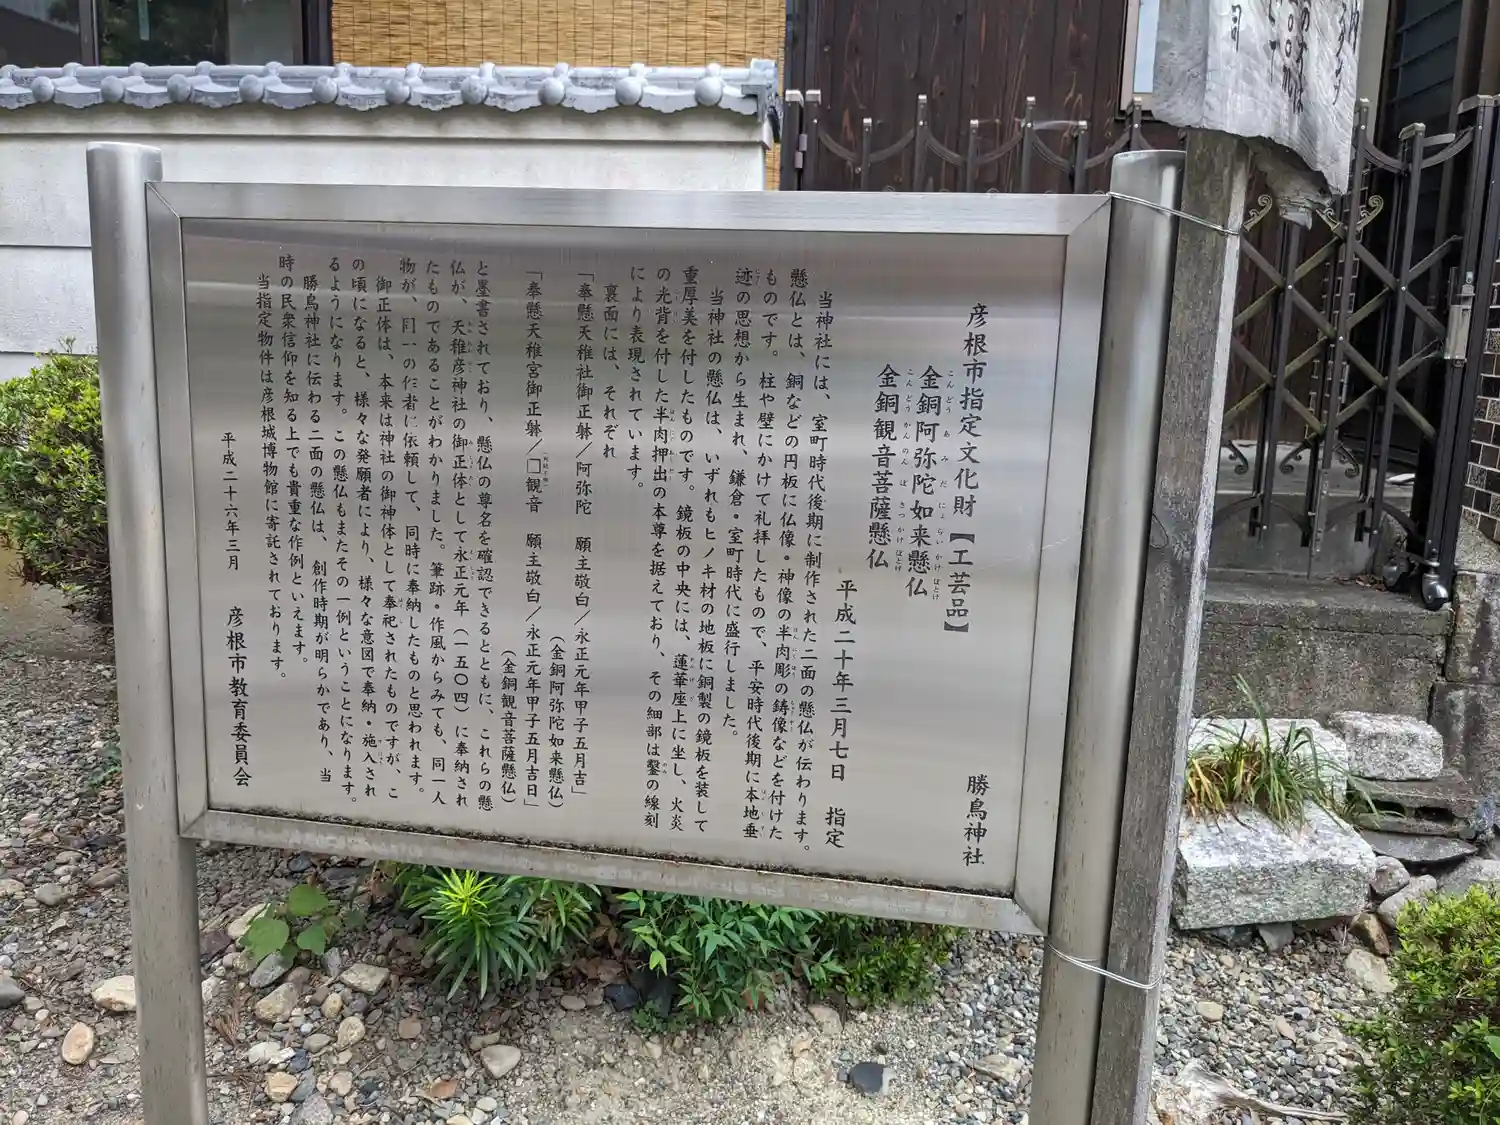 彦根市指定文化財【工芸品】 勝鳥神社
金銅阿弥陀如来懸仏
こんどう あ み だ にょ らい かけ ぼとけ
金銅観音菩薩懸仏
こんどう かん のん ぼ さつ かけ ぼとけ
平成二十年三月七日 指定
当神社には、室町時代後期に制作された二面の懸仏が伝わります。
懸仏とは、銅などの円板に仏像・神像の半肉彫の鋳像などを付けた
ものです。柱や壁にかけて礼拝したもので、平安時代後期に本地垂
迹の思想から生まれ、鎌倉・室町時代に盛行しました。
当神社の懸仏は、いずれもヒノキ材の地板に銅製の鏡板を装して
重厚美を付したものです。鏡板の中央には、蓮華座上に坐し、火炎
の光背を付した半肉押出の本尊を据えており、その細部は鏨の線刻
により表現されています。
裏面には、それぞれ
「奉懸天稚社御正躰／阿弥陀 願主敬白／永正元年甲子五月吉」
（金銅阿弥陀如来懸仏）
「奉懸天稚宮御正躰／□観音 願主敬白／永正元年甲子五月吉日」
（金銅観音菩薩懸仏）
と墨書されており、懸仏の尊名を確認できるとともに、これらの懸
仏が、天稚彦神社の御正体として永正元年（一五〇四）に奉納され
たものであることがわかりました。筆跡・作風からみても、同一人
物が、同一の作者に依頼して、同時に奉納したものと思われます。
御正体は、本来は神社の御神体として奉祀されたものですが、こ
の頃になると、様々な発願者により、様々な意図で奉納・施入され
るようになります。この懸仏もまたその一例ということになります。
勝鳥神社に伝わる二面の懸仏は、創作時期が明らかであり、当
時の民衆信仰を知る上でも貴重な作例といえます。
当指定物件は彦根城博物館に寄託されております。
平成二十六年三月 彦根市教育委員会